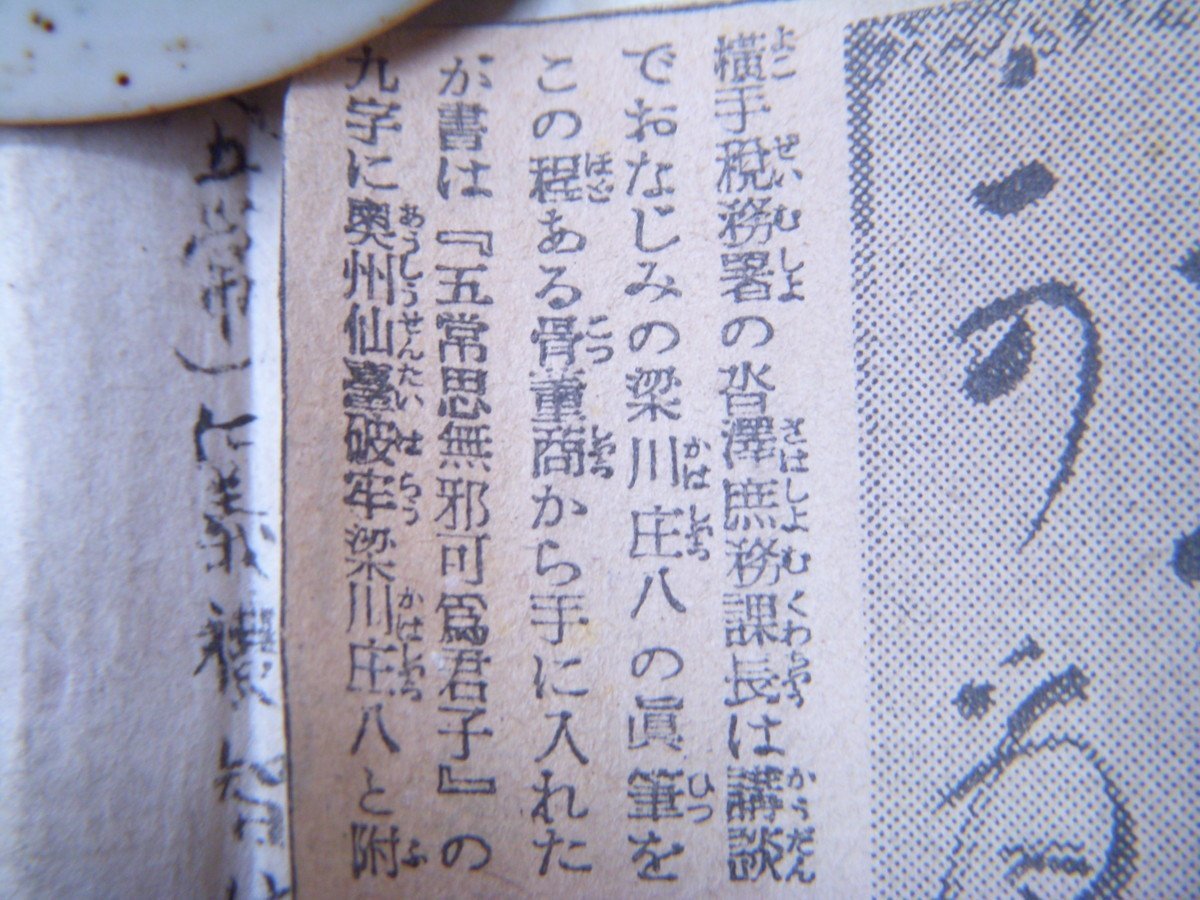 横手税務署の沓澤庶務課長は講談
でおなじみの梁川庄八の眞筆を
この程ある骨董商から手に入れた
が書は『五常思無邪可爲君子』の
九字に奥州仙臺破牢梁川庄八と附
五常)仁義禮知